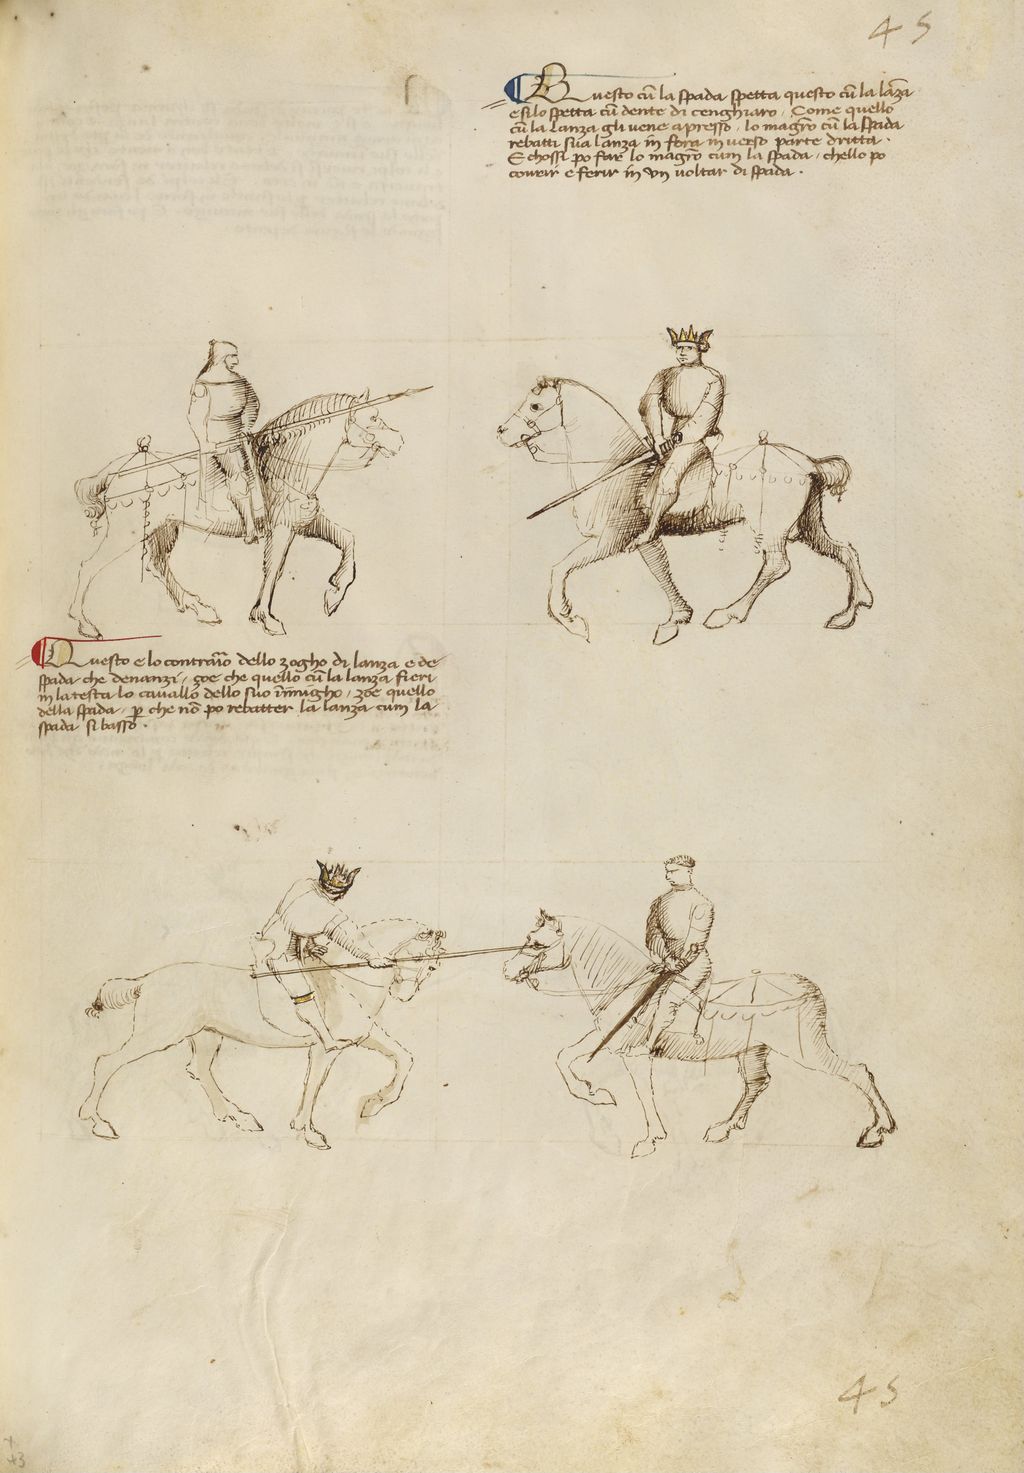 45
Questo cu̅ la spada spetta questo cu̅ la la̅za
e si lo spetta cu̅ dente di cenghiaro. Come quello
cu̅ la lanza gli vene apresso, lo magr̅o cu̅ la spada
rebatti sua lanza in fora in verso parte dritta.
E chossi po far lo magr̅o cum la spada, chello po
covrir e ferir in un voltar di spada.
Questo e lo contrar̅io dello zogho di lanza e de
spada che denanzi, zoe che quello cu̅ la lanza fieri
in la testa lo cavallo dello suo in̅imigho, zoe quello
della spada, p̱ che no̅ po rebatter la lanza cum la
spada si basso.
45